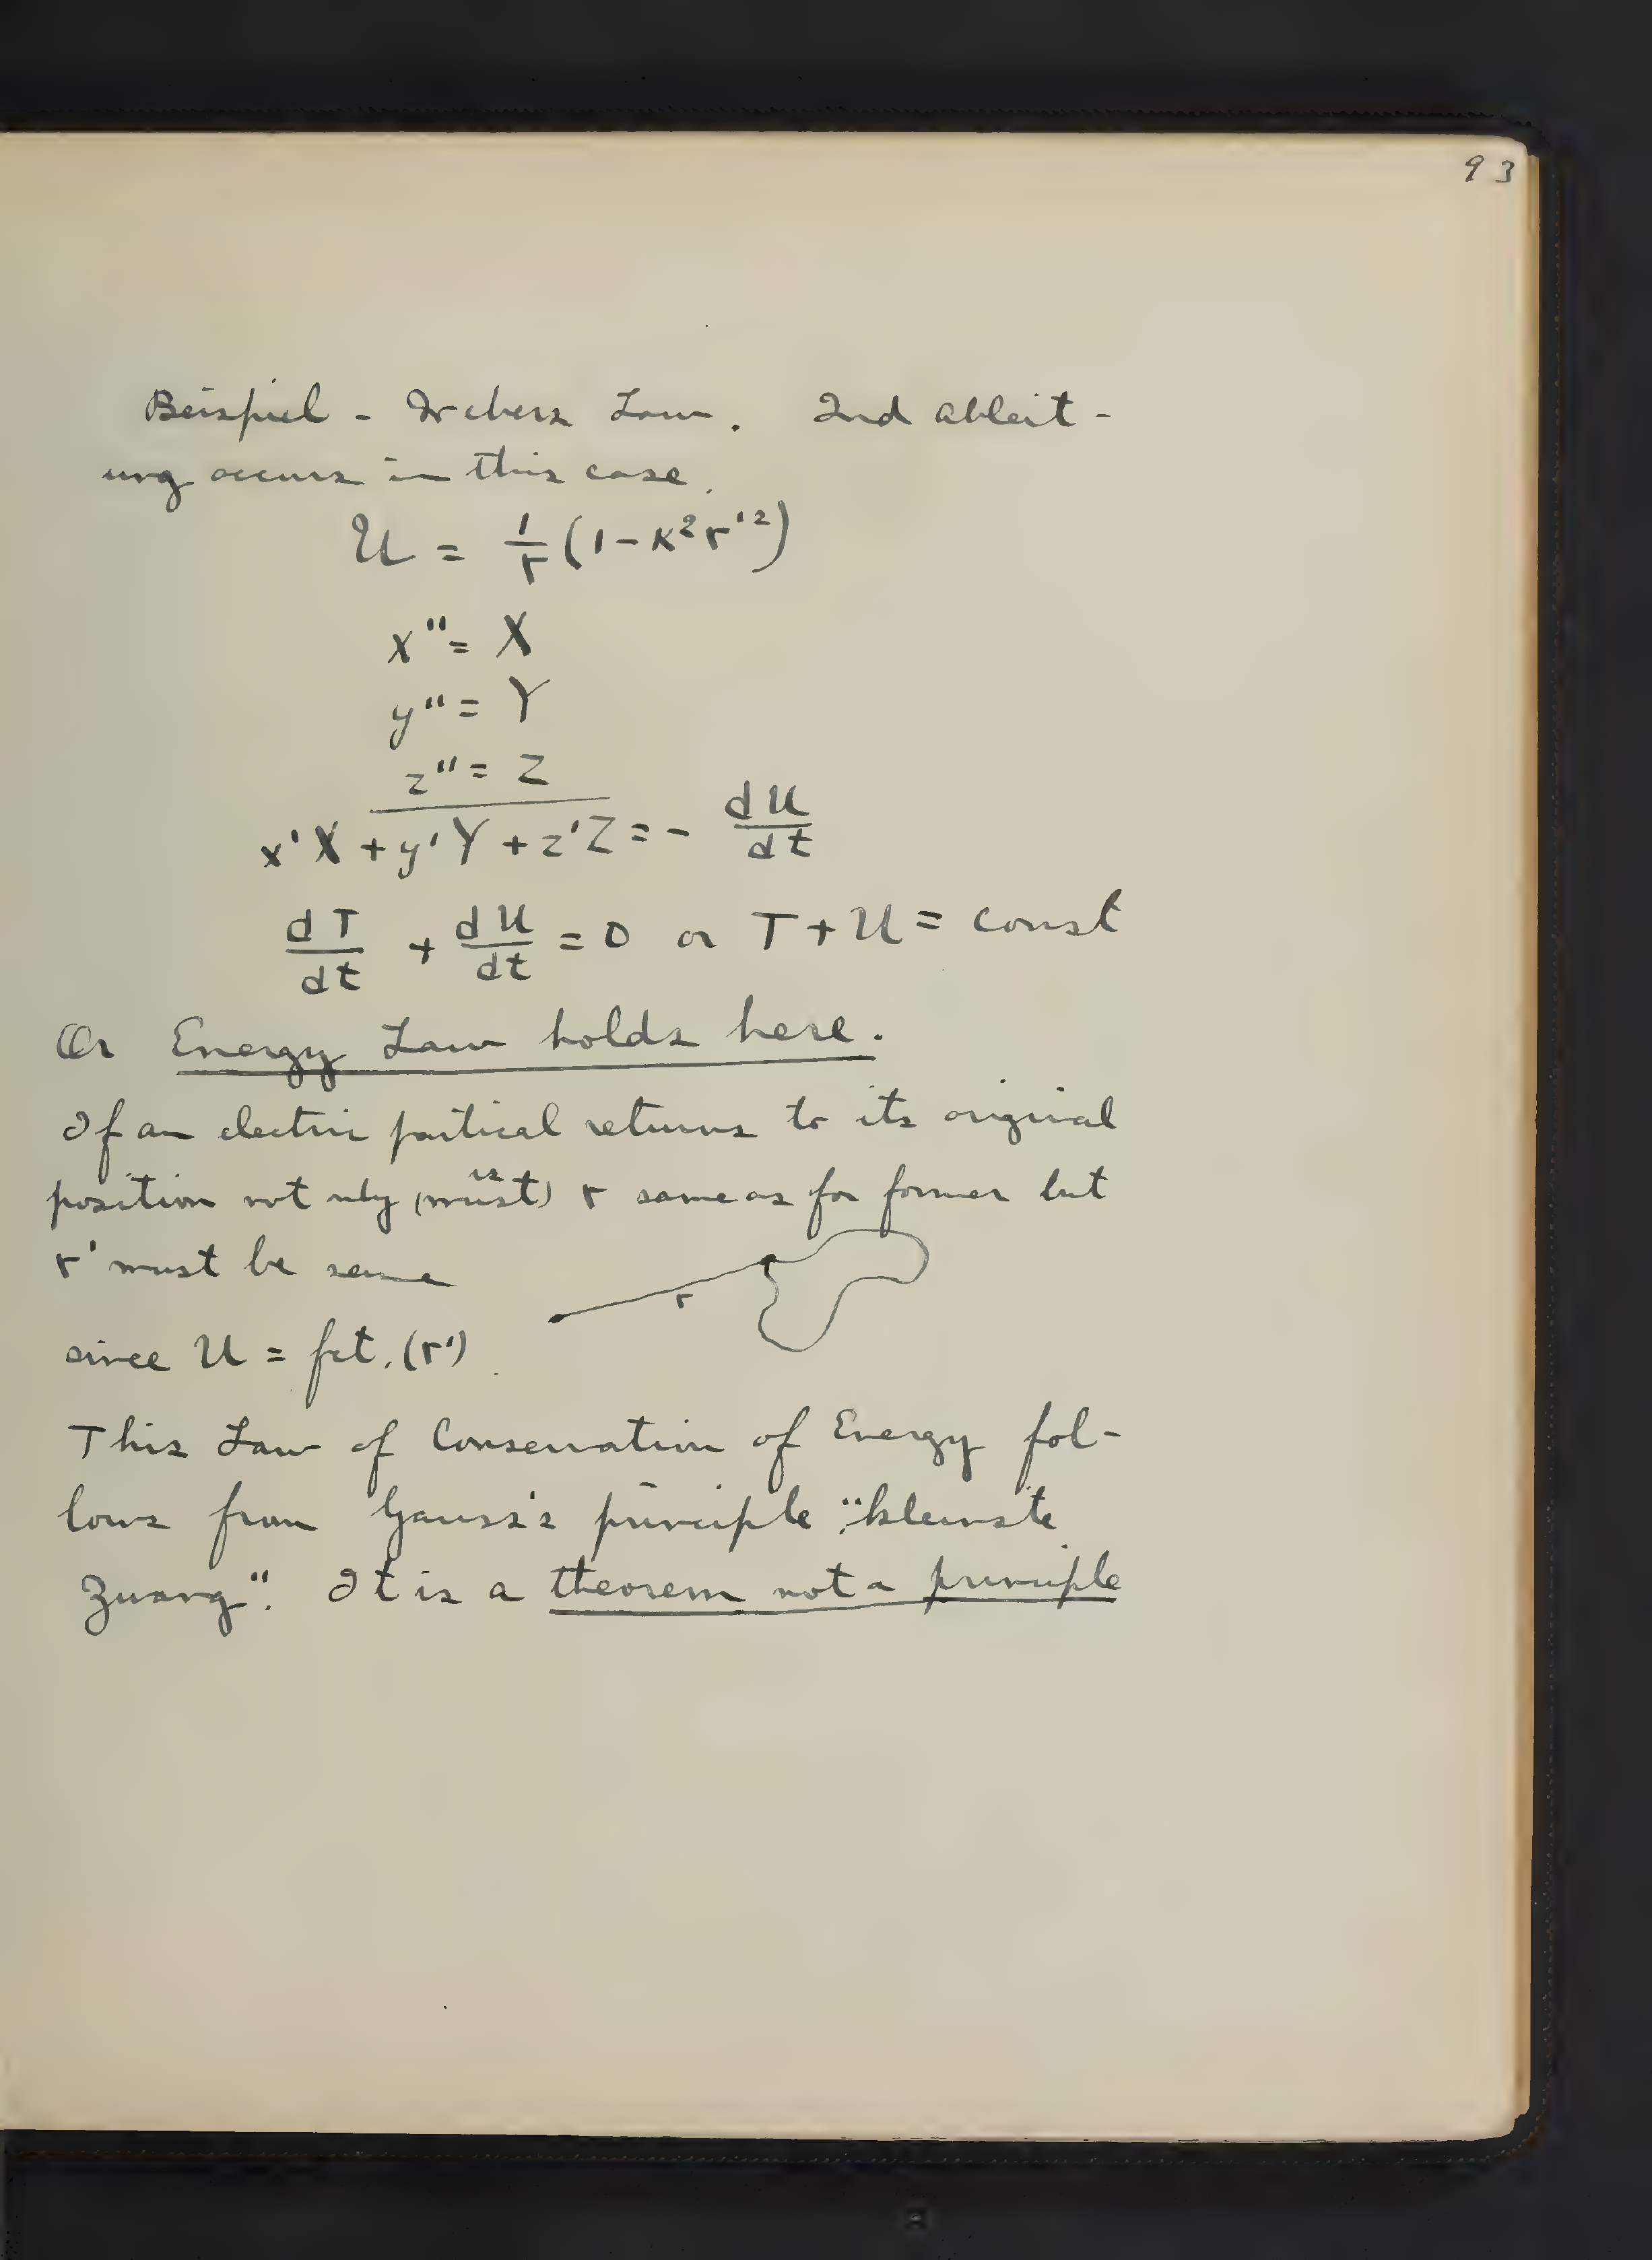 93
Beispiel - Webers Law. 2nd ableit-
ung occurs in this case.
U = 1/r (1 - K²r'²)
x" = X
y" = Y
z" = Z
x'X + y'Y + z'Z = - dU/dt
dT/dt + dU/dt = 0 or T + U = const
Or Energy Law holds here.
If an electric partical returns to its original
position not only (must) is r same as for former but
r' must be same
r
since U = fct. (r')
This Law of Conservation of Energy fol-
lows from Gauss's principle "kleinste
Zwang". It is a theorem not a principle